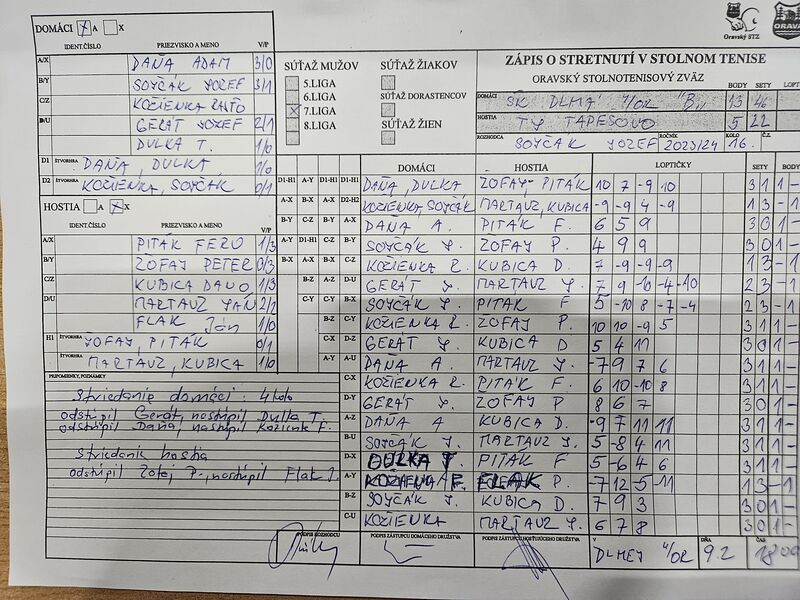 DOMÁCI X A X
IDENT.ČÍSLO PRIEZVISKO A MENO V/P
A/X DAŇA ADAM 3/0
B/Y SOYČÁK JOZEF 3/1
C/Z KOŽIENKA RAŤO
B/U GERÁT JOZEF 2/1
DULKA T. 1/0
D1 ŠTVORHRA DAŇA, DULKA 1/0
D2 ŠTVORHRA KOŽIENKA, SOYČÁK 0/1
HOSTIA A X X
IDENT.ČÍSLO PRIEZVISKO A MENO V/P
A/X PITÁK FERO 1/3
B/Y ŽOFAY PETER 0/3
C/Z KUBICA DANO 1/3
D/U MARTAUZ JÁN 2/2
FLAK Ján 1/0
H1 ŠTVORHRA ŽOFAY, PITÁK 0/1
ŠTVORHRA MARTAUZ, KUBICA 1/0
PRIPOMIENKY, POZNÁMKY
Striedanie domáci: 4 kolo
odstúpil Gerát, nastúpil Dulka T.
odstúpil Daňa, nastúpil Kožienk F.
Striedanie hostia
odstúpil Zofej P., nastúpil Flak J.
SÚŤAŽ MUŽOV
5.LIGA
6.LIGA
X 7.LIGA
8.LIGA
SÚŤAŽ ŽIAKOV
SÚŤAŽ DORASTENCOV
SÚŤAŽ ŽIEN
Oravský STZ
ORAVA
ZÁPIS O STRETNUTÍ V STOLNOM TENISE
ORAVSKÝ STOLNOTENISOVÝ ZVÄZ
BODY SETY LOPT
DOMÁCI ŠK DLHÁ N/OR "B" 13 46
HOSTIA TJ TAPEŠOVO 5 22
ROZHODCA SOYČÁK JOZEF ROČNÍK 2023/24 16. Č.Z.
DOMÁCI HOSTIA LOPTIČKY SETY BODY
D1-H1 A-Y D1-H1 D1-H1 DAŇA, DULKA ŽOFAY-PITÁK 10 7 -9 10 3 1 1 -
B-X C-Z A-X D2-H2 KOŽIENKA, SOYČÁK MARTAUZ, KUBICA -9 -9 4 -9 1 3 - 1
B-Y C-Z B-Y A-X DAŇA A. PITÁK F. 6 5 9 3 0 1 -
A-Y D1-H1 C-Z B-Y SOYČÁK J. ŽOFAY P. 4 9 9 3 0 1 -
B-X A-X B-X C-Z KOŽIENKA R. KUBICA D. 7 -9 -9 -9 1 3 - 1
B-Z A-Z D-U GERÁT J. MARTAUZ J. 7 9 -10 -4 -10 2 3 - 1
C-Y C-Y B-X SOYČÁK J. PITÁK F 5 -10 8 -7 -4 2 3 - 1
B-Z C-Y KOŽIENKA R. ŽOFAY P. 10 10 -9 5 3 1 1 -
C-X D-Z GERÁT J. KUBICA D 5 4 11 3 0 1 -
A-Y A-U DAŇA A. MARTAUZ J. -7 9 7 6 3 1 1 -
C-X KOŽIENKA R. PITÁK F. 6 10 -10 8 3 1 1 -
D-Y GERÁT J. ŽOFAY P 8 6 7 3 0 1 -
A-Z DAŇA A KUBICA D. -9 7 11 11 3 1 1 -
B-U SOYČÁK J. MARTAUZ J. 5 -8 4 11 3 1 1 -
D-X DULKA T. PITÁK F 5 -6 4 6 3 1 1 -
A-Y KOŽIENKA F. FLAK P. -7 12 -5 -11 1 3 - 1
B-Z SOYČÁK J. KUBICA D. 7 9 3 3 0 1 -
C-U KOŽIENKA MARTAUZ J. 6 7 8 3 0 1 -
PODPIS ROZHODCU PODPIS ZÁSTUPCU DOMÁCEHO DRUŽSTVA PODPIS ZÁSTUPCU HOSŤUJÚCEHO DRUŽSTVA V DLHEJ N/OR DŇA 9.2 ČAS 18:00